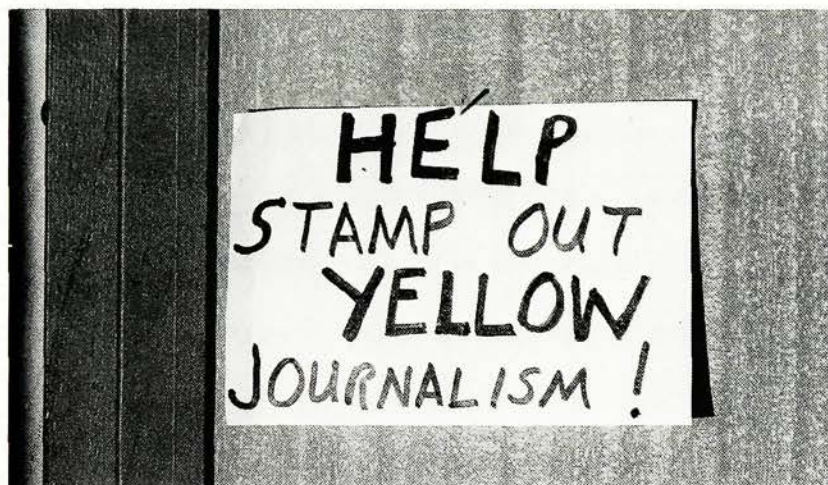 HELP
STAMP OUT
YELLOW
JOURNALISM !